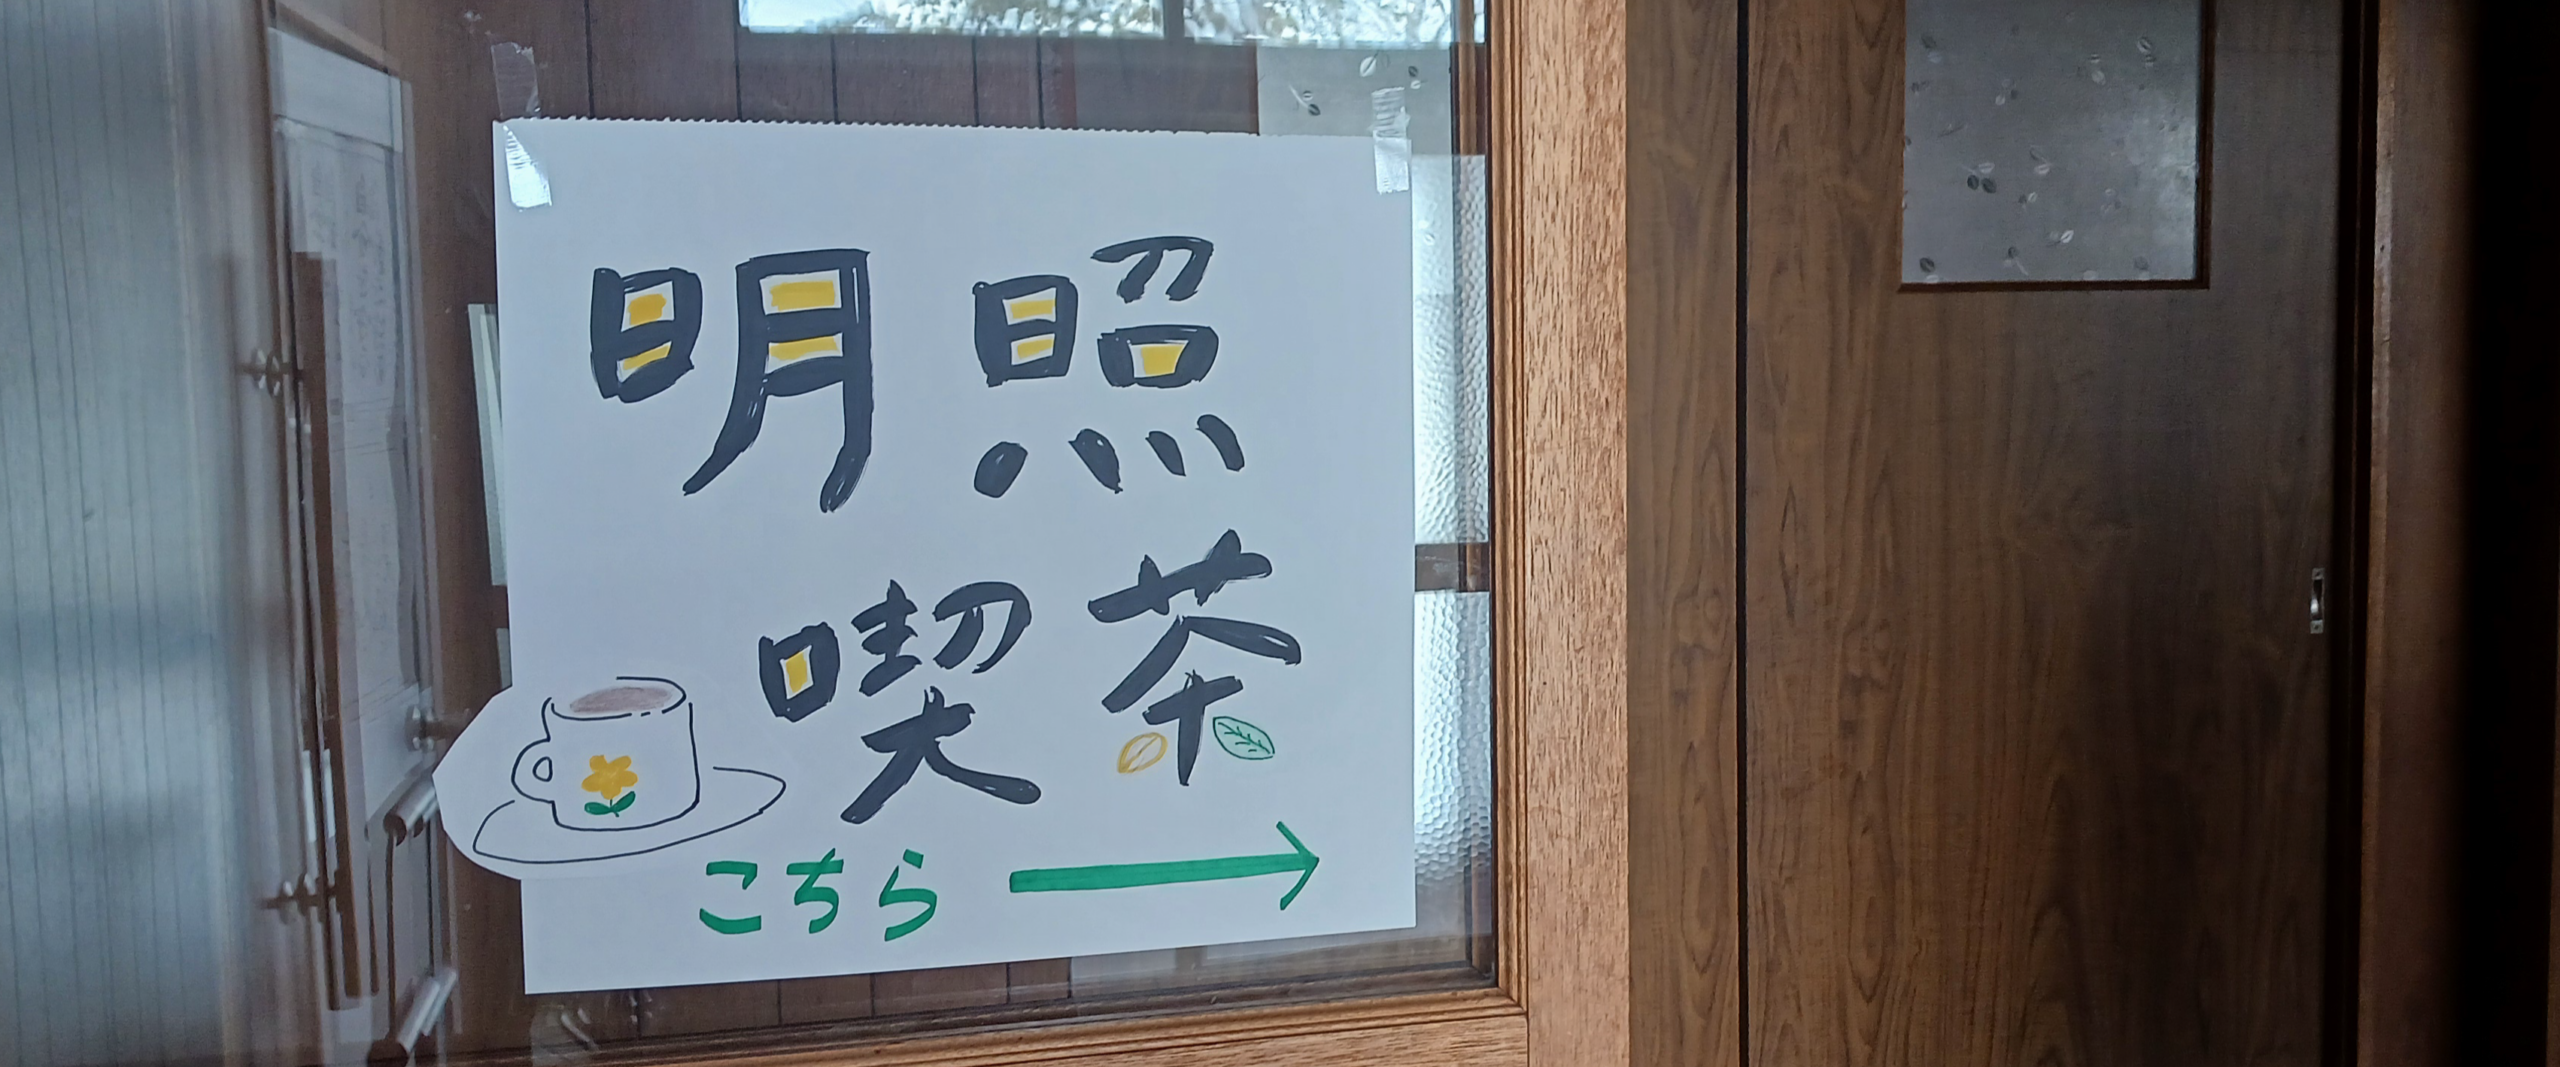 明照
喫茶
こちら →